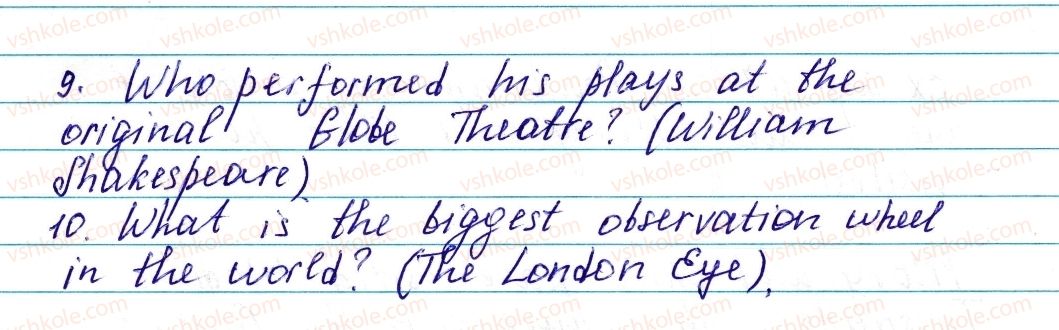 9. Who performed his plays at the
original Globe Theatre? (William
Shakespeare)
10. What is the biggest observation wheel
in the world? (The London Eye).